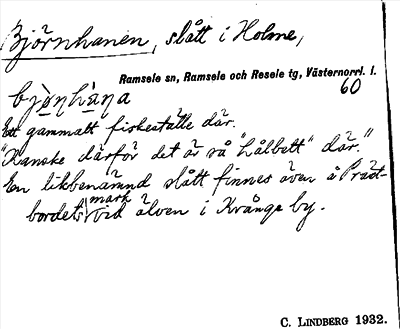 Björnhanen, slått i Holme,
Ramsele sn, Ramsele och Resele tg, Västernorrl. l.
60
bjø̀ṇhàṇa
Ett gammalt fiskeställe där.
"Kanske därför det är så "hålbett" där."
En likbenämnd slått finnes även å Präst-
bordets mark vid älven i Krånge by.
C. LINDBERG 1932.